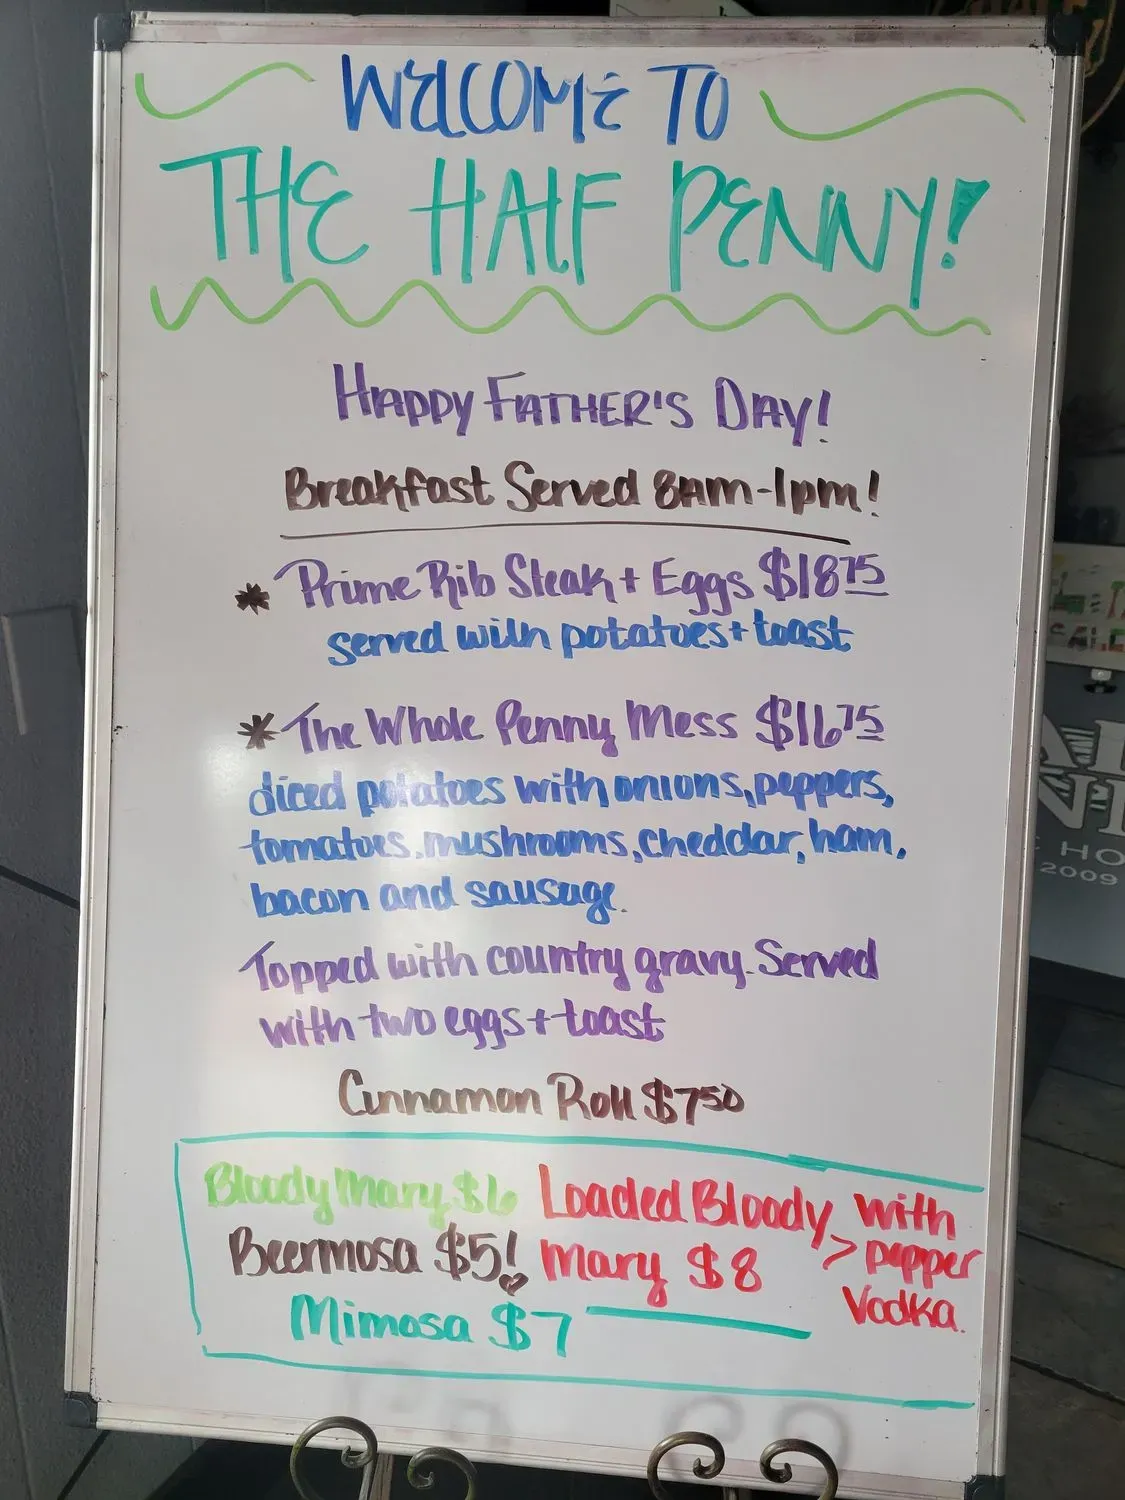 WELCOME TO
THE HALF PENNY!
HAPPY FATHER'S DAY!
Breakfast Served 8AM-1pm!
* Prime Rib Steak + Eggs $1875
served with potatoes + toast
* The Whole Penny Mess $1675
diced potatoes with onions, peppers,
tomatoes, mushrooms, cheddar, ham,
bacon and sausage.
Topped with country gravy. Served
with two eggs + toast
Cinnamon Roll $750
Bloody Mary $6
Beermosa $5!
Mimosa $7
Loaded Bloody
Mary $8
> with
pepper
Vodka.
HO
2009